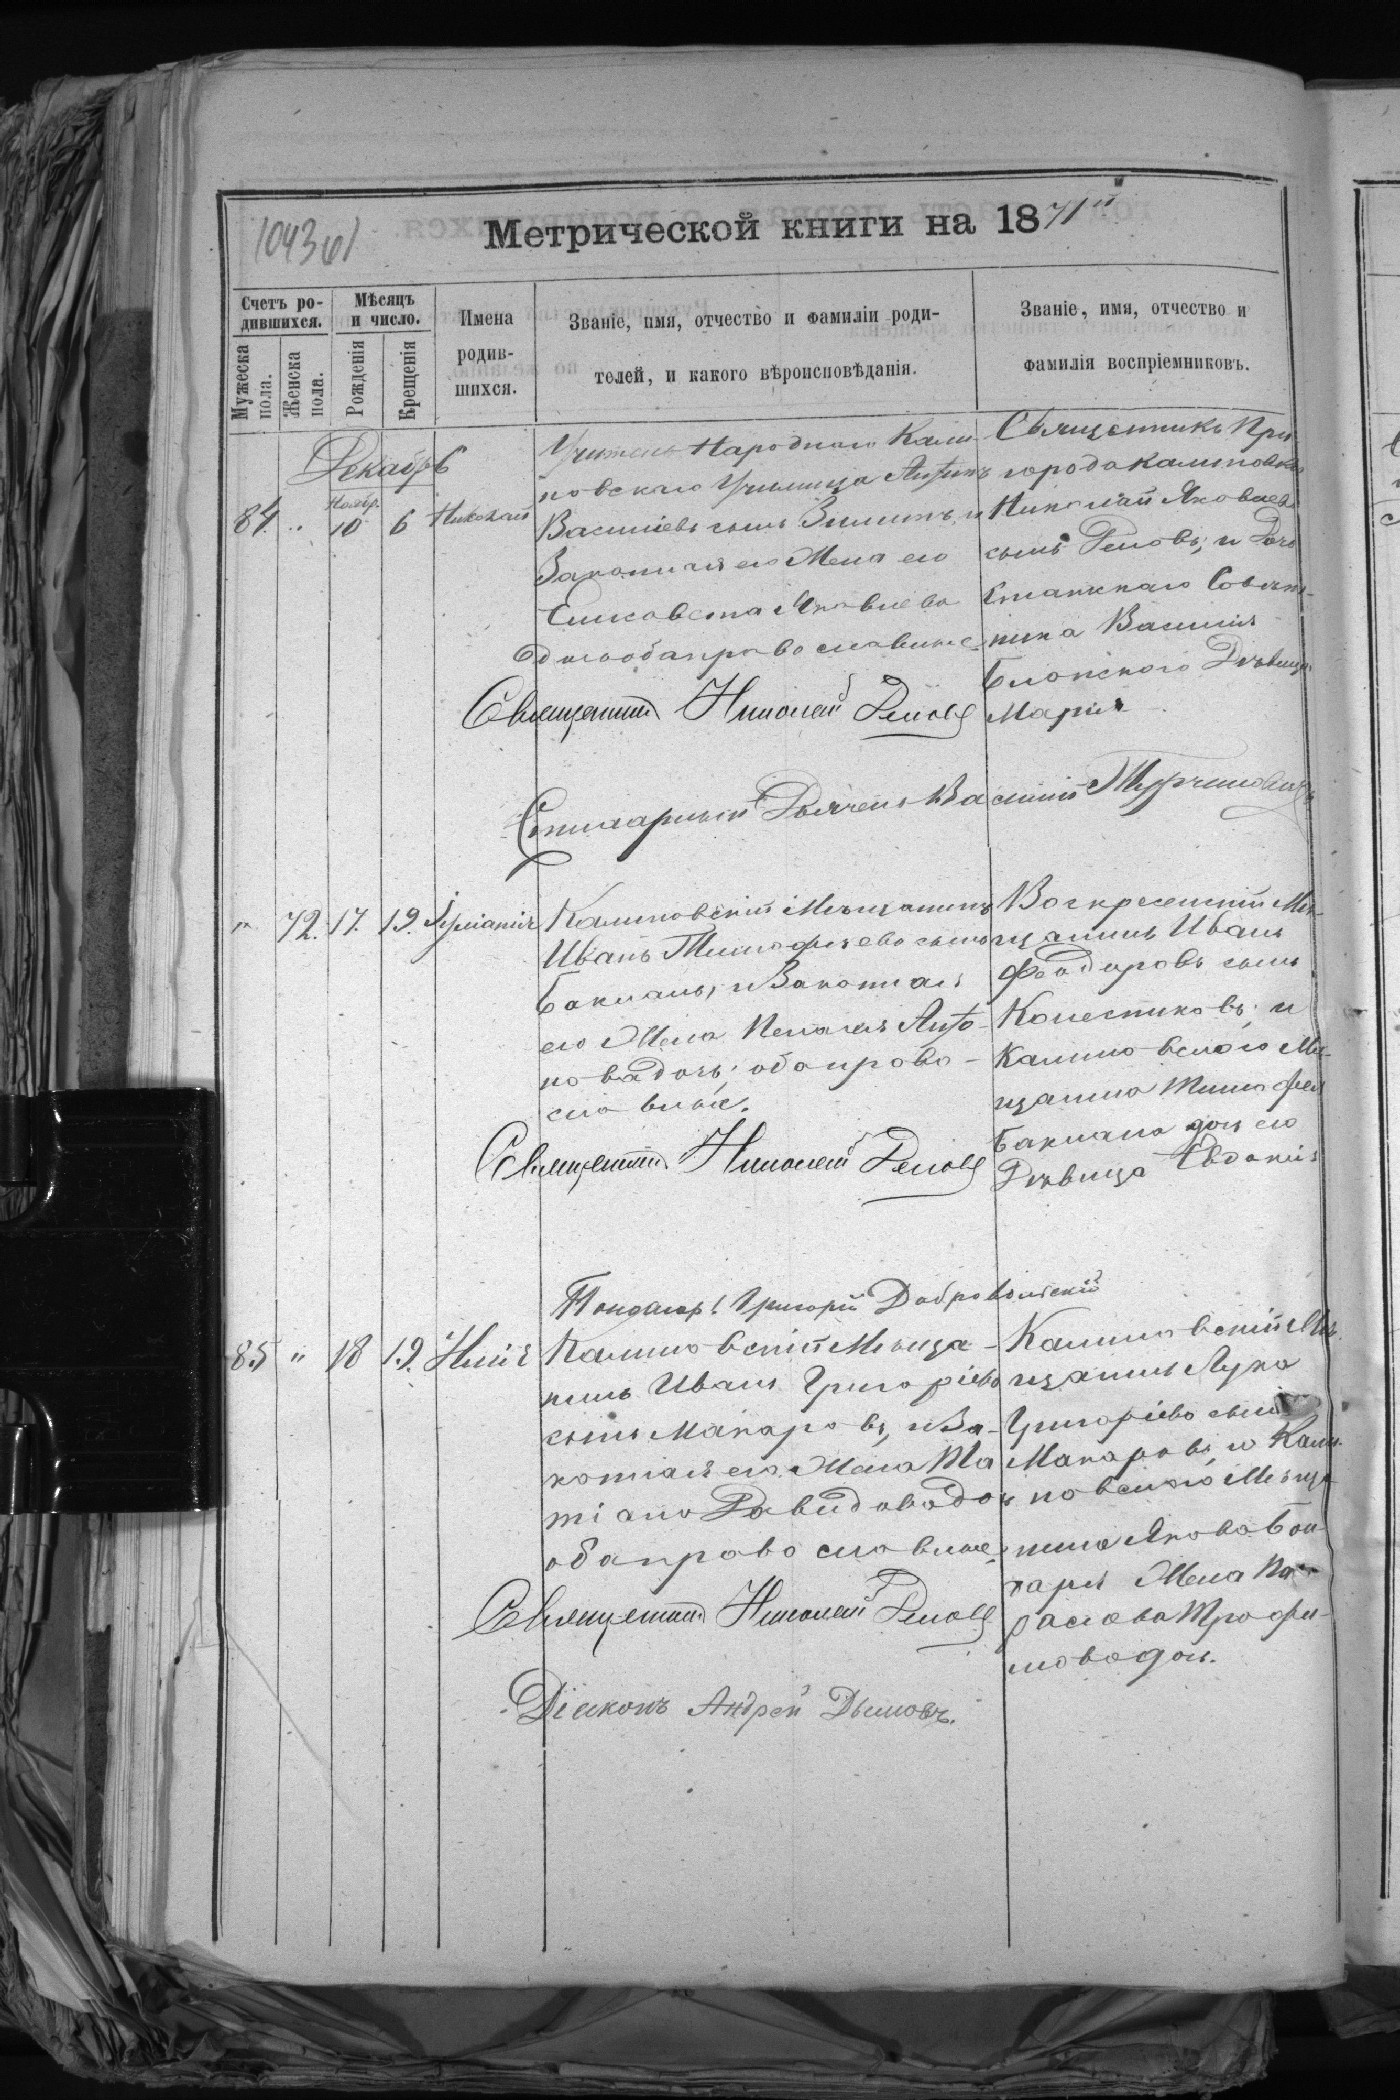 104361
Метрической книги на 1871й
Счетъ ро-
дившихся.
Мужеска пола.
Женска пола.
Мѣсяцъ
и число.
Рожденія
Крещенія
Имена
родив-
шихся.
Званіе, имя, отчество и фамиліи роди-
телей, и какого вѣроисповѣданія.
Званіе, имя, отчество и
фамилія воспріемниковъ.
Декабрь
84. „ Ноябр. 10 6 Николай
Учитель Народнаго Кали-
новскаго Училища Антипъ
Василіевъ сынъ Зиминъ, и
Законная его Жена его
Елисавета Яковлева
оба православные.
Священникъ Николай
Священникъ При-
города Калиновки
Николай Яковлевъ
сынъ и Дочь
Статскаго Совѣтни-
ника Василія
Дѣвица
Марія
Василій
„ 72. 17. 19. Іуліанія
Калиновскій Мѣщанинъ
Иванъ Тимофѣевъ сынъ
Бакланъ, и Законная
его Жена Пелагея Анто-
нова дочь; оба право-
славные.
Священникъ Николай
Воскресенскій Мѣ-
щанинъ Иванъ
Феодоровъ сынъ
Колесниковъ; и
Калиновскаго Мѣ-
щанина Тимофея
Баклана дочь его
Дѣвица Евдокія
Григорій Добровольскій
85 „ 18 19. Илія
Калиновскій Мѣща-
нинъ Иванъ Григоріевъ
сынъ Макаровъ, и За-
конная его Жена Та
тіана Давидова дочь
оба православные.
Священникъ Николай
Калиновскій Мѣ-
щанинъ Лука
Григоріевъ сынъ
Макаровъ, и Кали-
новскаго Мѣща-
нина Якова Бон-
таря Жена Па-
раскева Трофи-
мова дочь.
Діаконъ Андрей Дымовъ.